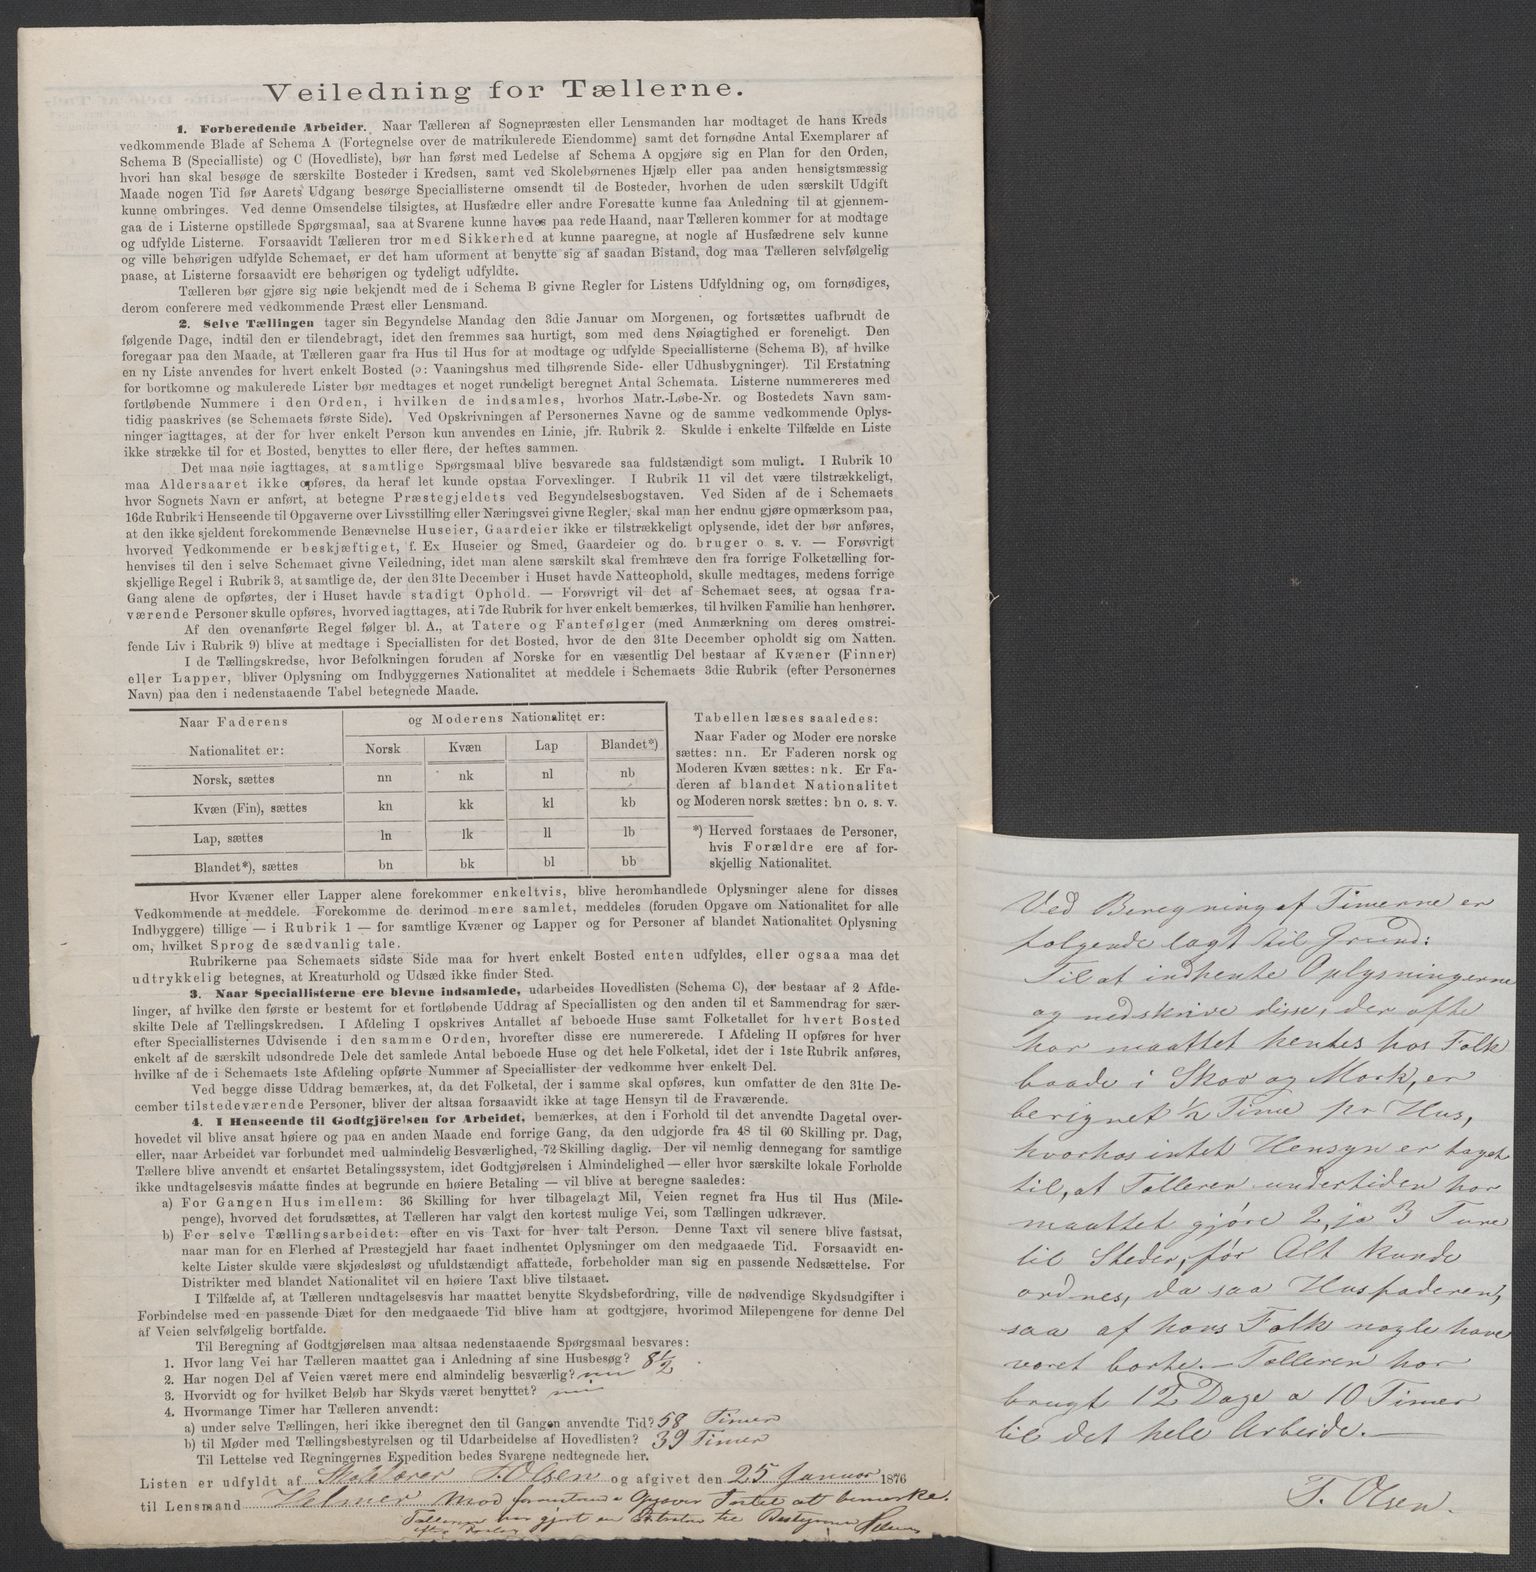 Veiledning for Tællerne.
1. Forberedende Arbeider. Naar Tælleren af Sognepræsten eller Lensmanden har modtaget de hans Kreds
vedkommende Blade af Schema A (Fortegnelse over de matrikulerede Eiendomme) samt det fornødne Antal Exemplarer af
Schema B (Specialliste) og C (Hovedliste), bør han først med Ledelse af Schema A opgjøre sig en Plan for den Orden,
hvori han skal besøge de særskilte Bosteder i Kredsen, samt ved Skolebørnenes Hjælp eller paa anden hensigtsmæssig
Maade nogen Tid før Aarets Udgang besørge Speciallisterne omsendt til de Bosteder, hvorhen de uden særskilt Udgift
kunne ombringes. Ved denne Omsendelse tilsigtes, at Husfædre eller andre Foresatte kunne faa Anledning til at gjennem-
gaa de i Listerne opstillede Spørgsmaal, saa at Svarene kunne haves paa rede Haand, naar Tælleren kommer for at modtage
og udfylde Listerne. Forsaavidt Tælleren tror med Sikkerhed at kunne paaregne, at nogle af Husfædrene selv kunne
og ville behørigen udfylde Schemaet, er det ham uforment at benytte sig af saadan Bistand, dog maa Tælleren selvfølgelig
paase, at Listerne forsaavidt ere behørigen og tydeligt udfyldte.
Tælleren bør gjøre sig nøie bekjendt med de i Schema B givne Regler for Listens Udfyldning og, om fornødiges,
derom conferere med vedkommende Præst eller Lensmand.
2. Selve Tællingen tager sin Begyndelse Mandag den 3die Januar om Morgenen, og fortsættes uafbrudt de
følgende Dage, indtil den er tilendebragt, idet den fremmes saa hurtigt, som med dens Nøiagtighed er foreneligt. Den
foregaar paa den Maade, at Tælleren gaar fra Hus til Hus for at modtage og udfylde Speciallisterne (Schema B), af hvilke
en ny Liste anvendes for hvert enkelt Bosted (ɔ: Vaaningshus med tilhørende Side- eller Udhusbygninger). Til Erstatning
for bortkomne og makulerede Lister bør medtages et noget rundeligt beregnet Antal Schemata. Listerne nummereres med
fortløbende Nummere i den Orden, i hvilken de indsamles, hvorhos Matr.-Løbe-Nr. og Bostedets Navn sam-
tidig paaskrives (se Schemaets første Side). Ved Opskrivningen af Personernes Navne og de samme vedkommende Oplys-
ninger iagttages, at der for hver enkelt Person kun anvendes en Linie, jfr. Rubrik 2. Skulde i enkelte Tilfælde en Liste
ikke strække til for et Bosted, benyttes to eller flere, der heftes sammen.
Det maa nøie iagttages, at samtlige Spørgsmaal blive besvarede saa fuldstændigt som muligt. I Rubrik 10
maa Aldersaaret ikke opføres, da heraf let kunde opstaa Forvexlinger. I Rubrik 11 vil det være tilstrækkeligt,
hvor Sognets Navn er anført, at betegne Præstegjeldets ved Begyndelsesbogstaven. Ved Siden af de i Schemaets
16de Rubrik i Henseende til Opgaverne over Livsstilling eller Næringsvei givne Regler, skal man her endnu gjøre opmærksom paa,
at den ikke sjeldent forekommende Benævnelse Huseier, Gaardeier ikke er tilstrækkeligt oplysende, idet der bør anføres,
hvorved Vedkommende er beskjæftiget, f. Ex Huseier og Smed, Gaardeier og do. bruger o s. v. — Forøvrigt
henvises til den i selve Schemaet givne Veiledning, idet man alene særskilt skal fremhæve den fra forrige Folketælling for-
skjellige Regel i Rubrik 3, at samtlige de, der den 31te December i Huset havde Natteophold, skulle medtages, medens forrige
Gang alene de opførtes, der i Huset havde stadigt Ophold. — Forøvrigt vil det af Schemaet sees, at ogsaa fra-
værende Personer skulle opføres, hvorved iagttages, at i 7de Rubrik for hver enkelt bemærkes, til hvilken Familie han henhører.
Af den ovenanførte Regel følger bl. A., at Tatere og Fantefølger (med Anmærkning om deres omstrei-
fende Liv i Rubrik 9) blive at medtage i Speciallisten for det Bosted, hvor de den 31te December opholdt sig om Natten.
I de Tællingskredse, hvor Befolkningen foruden af Norske for en væsentlig Del bestaar af Kvæner (Finner)
eller Lapper, bliver Oplysning om Indbyggernes Nationalitet at meddele i Schemaets 3die Rubrik (efter Personernes
Navn) paa den i nedenstaaende Tabel betegnede Maade.
Naar Faderens
Nationalitet er:
og Moderens Nationalitet er:
Norsk Kvæn Lap Blandet*)
Norsk, sættes nn nk nl nb
Kvæn (Fin), sættes kn kk kl kb
Lap, sættes ln lk ll lb
Blandet*), sættes bn bk bl bb
Tabellen læses saaledes:
Naar Fader og Moder ere norske
sættes: nn. Er Faderen norsk og
Moderen Kvæn sættes: nk. Er Fa-
deren af blandet Nationalitet
og Moderen norsk sættes: bn o. s. v.
*) Herved forstaaes de Personer,
hvis Forældre ere af for-
skjellig Nationalitet.
Hvor Kvæner eller Lapper alene forekommer enkeltvis, blive heromhandlede Oplysninger alene for disses
Vedkommende at meddele. Forekomme de derimod mere samlet, meddeles (foruden Opgave om Nationalitet for alle
Indbyggere) tillige — i Rubrik 1 — for samtlige Kvæner og Lapper og for Personer af blandet Nationalitet Oplysning
om, hvilket Sprog de sædvanlig tale.
Rubrikerne paa Schemaets sidste Side maa for hvert enkelt Bosted enten udfyldes, eller ogsaa maa det
udtrykkelig betegnes, at Kreaturhold og Udsæd ikke finder Sted.
3. Naar Speciallisterne ere blevne indsamlede, udarbeides Hovedlisten (Schema C), der bestaar af 2 Afde-
linger, af hvilke den første er bestemt for et fortløbende Uddrag af Speciallisten og den anden til et Sammendrag for sær-
skilte Dele af Tællingskredsen. I Afdeling I opskrives Antallet af beboede Huse samt Folketallet for hvert Bosted
efter Speciallisternes Udvisende i den samme Orden, hvorefter disse ere numererede. I Afdeling II opføres for hver
enkelt af de særskilt udsondrede Dele det samlede Antal beboede Huse og det hele Folketal, idet der i 1ste Rubrik anføres,
hvilke af de i Schemaets 1ste Afdeling opførte Nummer af Speciallister der vedkomme hver enkelt Del.
Ved begge disse Uddrag bemærkes, at, da det Folketal, der i samme skal opføres, kun omfatter de den 31te De-
cember tilstedeværende Personer, bliver der altsaa forsaavidt ikke at tage Hensyn til de Fraværende.
4. I Henseende til Godtgjörelsen for Arbeidet, bemærkes, at den i Forhold til det anvendte Dagetal over-
hovedet vil blive ansat høiere og paa en anden Maade end forrige Gang, da den udgjorde fra 48 til 60 Skilling pr. Dag,
eller, naar Arbeidet var forbundet med ualmindelig Besværlighed, 72 Skilling daglig. Der vil nemlig dennegang for samtlige
Tællere blive anvendt et ensartet Betalingssystem, idet Godtgjørelsen i Almindelighed — eller hvor særskilte lokale Forholde
ikke undtagelsesvis maatte findes at begrunde en høiere Betaling — vil blive at beregne saaledes:
a) For Gangen Hus imellem: 36 Skilling for hver tilbagelagt Mil, Veien regnet fra Hus til Hus (Mile-
penge), hvorved det forudsættes, at Tælleren har valgt den kortest mulige Vei, som Tællingen udkræver.
b) For selve Tællingsarbeidet: efter en vis Taxt for hver talt Person. Denne Taxt vil senere blive fastsat,
naar man for en Flerhed af Præstegjeld har faaet indhentet Oplysninger om den medgaaede Tid. Forsaavidt en-
kelte Lister skulde være skjødesløst og ufuldstændigt affattede, forbeholder man sig en passende Nedsættelse. For
Distrikter med blandet Nationalitet vil en høiere Taxt blive tilstaaet.
I Tilfælde af, at Tælleren undtagelsesvis har maattet benytte Skydsbefordring, ville de nødvendige Skydsudgifter i
Forbindelse med en passende Diæt for den medgaaede Tid blive ham at godtgjøre, hvorimod Milepengene for denne Del
af Veien selvfølgelig bortfalde.
Til Beregning af Godtgjørelsen maa altsaa nedenstaaende Spørgsmaal besvares:
1. Hvor lang Vei har Tælleren maattet gaa i Anledning af sine Husbesøg? 8½
2. Har nogen Del af Veien været mere end almindelig besværlig?
3. Hvorvidt og for hvilket Beløb har Skyds været benyttet?
4. Hvormange Timer har Tælleren anvendt:
a) under selve Tællingen, heri ikke iberegnet den til Gangen anvendte Tid? 58 Timer
b) til Møder med Tællingsbestyrelsen og til Udarbeidelse af Hovedlisten? 39 Timer
Til Lettelse ved Regningernes Expedition bedes Svarene nedtegnede her.
Listen er udfyldt af Skolelærer T. Olsen og afgivet den 25 Januar 1876
til Lensmand Helmer Mod at bemærke.
Tælleren har gjort en til Bestyreren
Ved Beregning af Timerne er
følgende lagt til Grund:
Til at indhente Oplysningerne
og nedskrive disse, der ofte
har maattet hentes hos Folk
baade i Skov og Mark, er
beregnet ½ Time pr Hus,
hvorhos intet Hensyn er taget
til, at Tælleren undertiden har
maattet gjøre 2, ja 3 Ture
til Steder, før Alt kunde
ordnes, da saa Husfaderen,
saa af hans Folk nogle have
været borte. — Tælleren har
brugt 12 Dage a 10 Timer
til det hele Arbeide. —
T. Olsen.